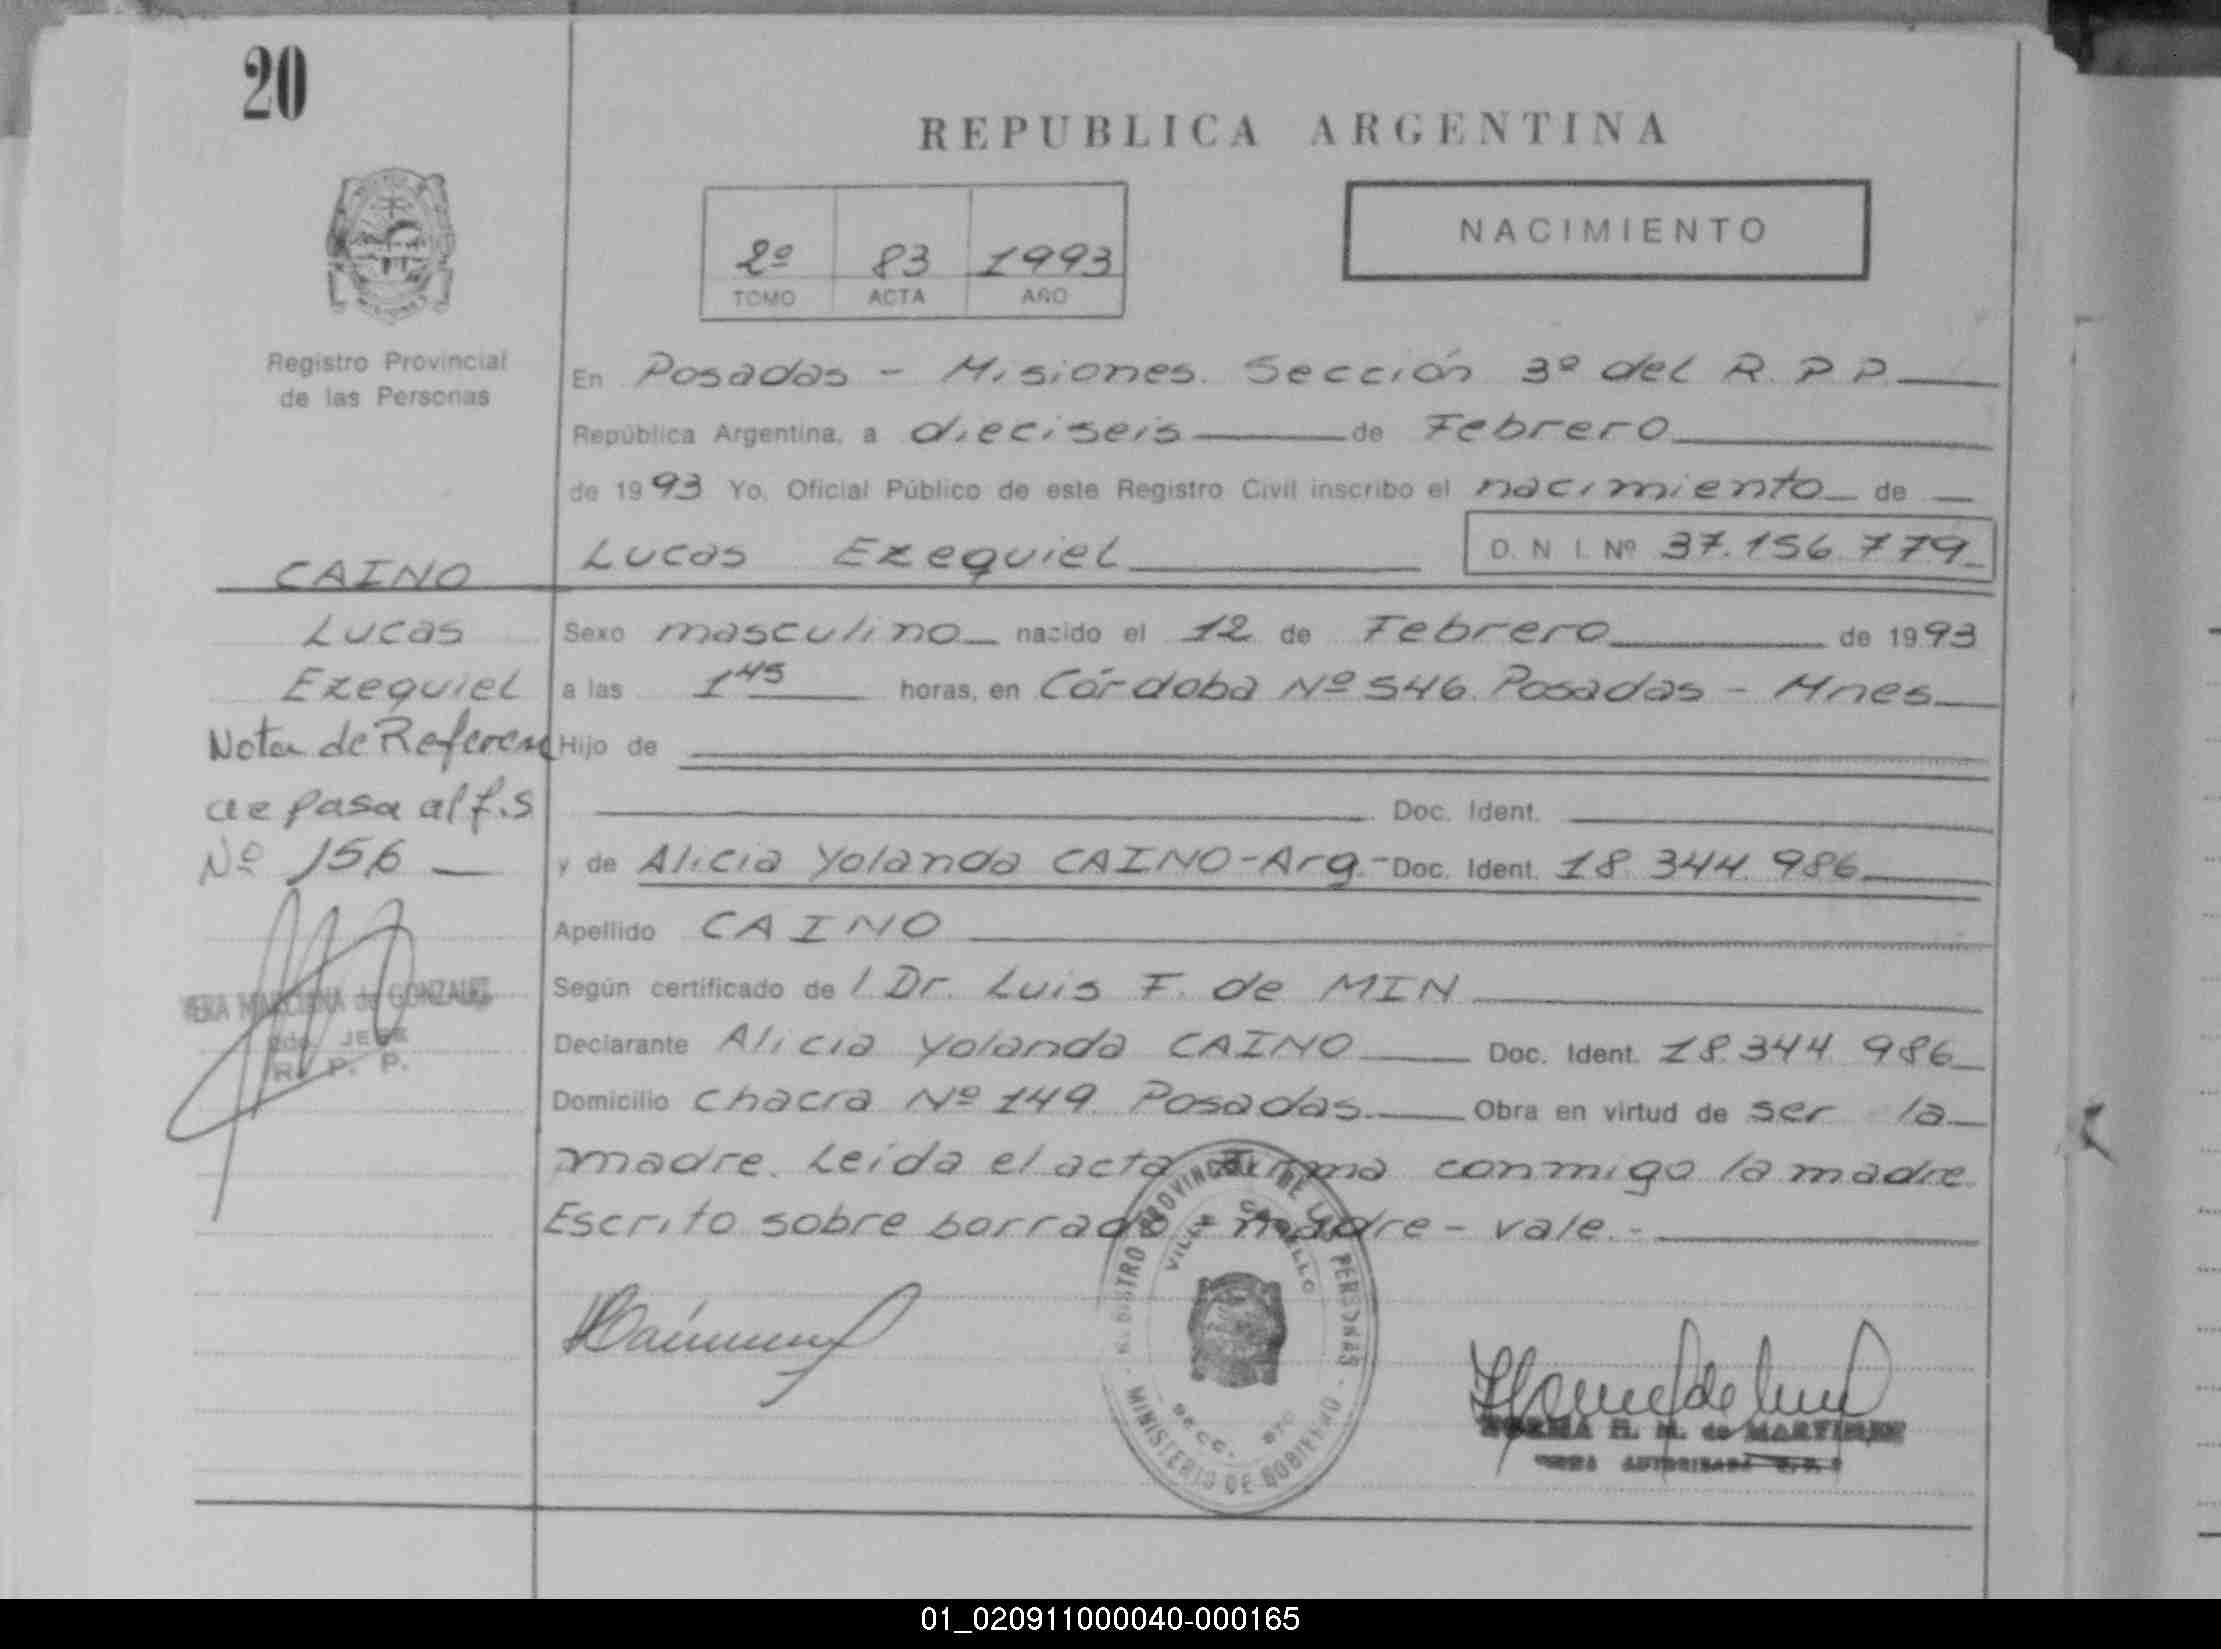 20
REPUBLICA ARGENTINA
2º 83 1993
TOMO ACTA AÑO
NACIMIENTO
Registro Provincial
de las Personas
En Posadas - Misiones. Sección 3º del R.P.P.
República Argentina, a dieciseis de Febrero
de 1993 Yo, Oficial Público de este Registro Civil inscribo el nacimiento de
Lucas Ezequiel D. N. I. Nº 37.156.779
CAINO
Lucas
Ezequiel
Nota de Referen
cia pasa al f.s
Nº 156
Sexo masculino nacido el 12 de Febrero de 1993
a las 1 45 horas, en Córdoba Nº 546. Posadas - Mnes
Hijo de
Doc. Ident.
y de Alicia Yolanda CAINO - Arg. - Doc. Ident. 18.344.986
Apellido CAINO
Según certificado de l Dr. Luis F. de MIN
Declarante Alicia Yolanda CAINO Doc. Ident. 18.344.986
Domicilio chacra Nº 149. Posadas. Obra en virtud de ser la
madre. Leída el acta Firma conmigo la madre.
Escrito sobre borrado - madre - vale.-
de GONZALEZ
JEFE
R. P. P.
REGISTRO PROVINCIAL DE LAS PERSONAS
MINISTERIO DE GOBIERNO
VILLA
SECC.
NORMA H. M. de MARTINEZ
FIRMA AUTORIZADA
01_020911000040-000165